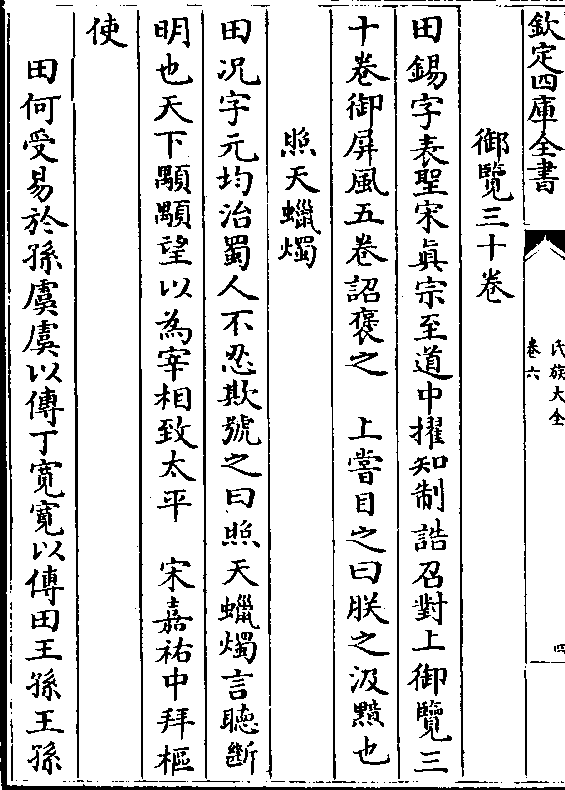 欽定四庫全書
氏族大全
卷六
四
御覽三十卷
田錫字表聖宋真宗至道中擢知制誥召對上御覽三
十卷御屏風五卷詔褒之　上嘗目之曰朕之汲黯也
照天蠟燭
田况字元均治蜀人不忍欺號之曰照天蠟燭言聽斷
明也天下顒顒望以為宰相致太平　宋嘉祐中拜樞
使
田何受易於孫虞虞以傳丁寛寛以傳田王孫王孫